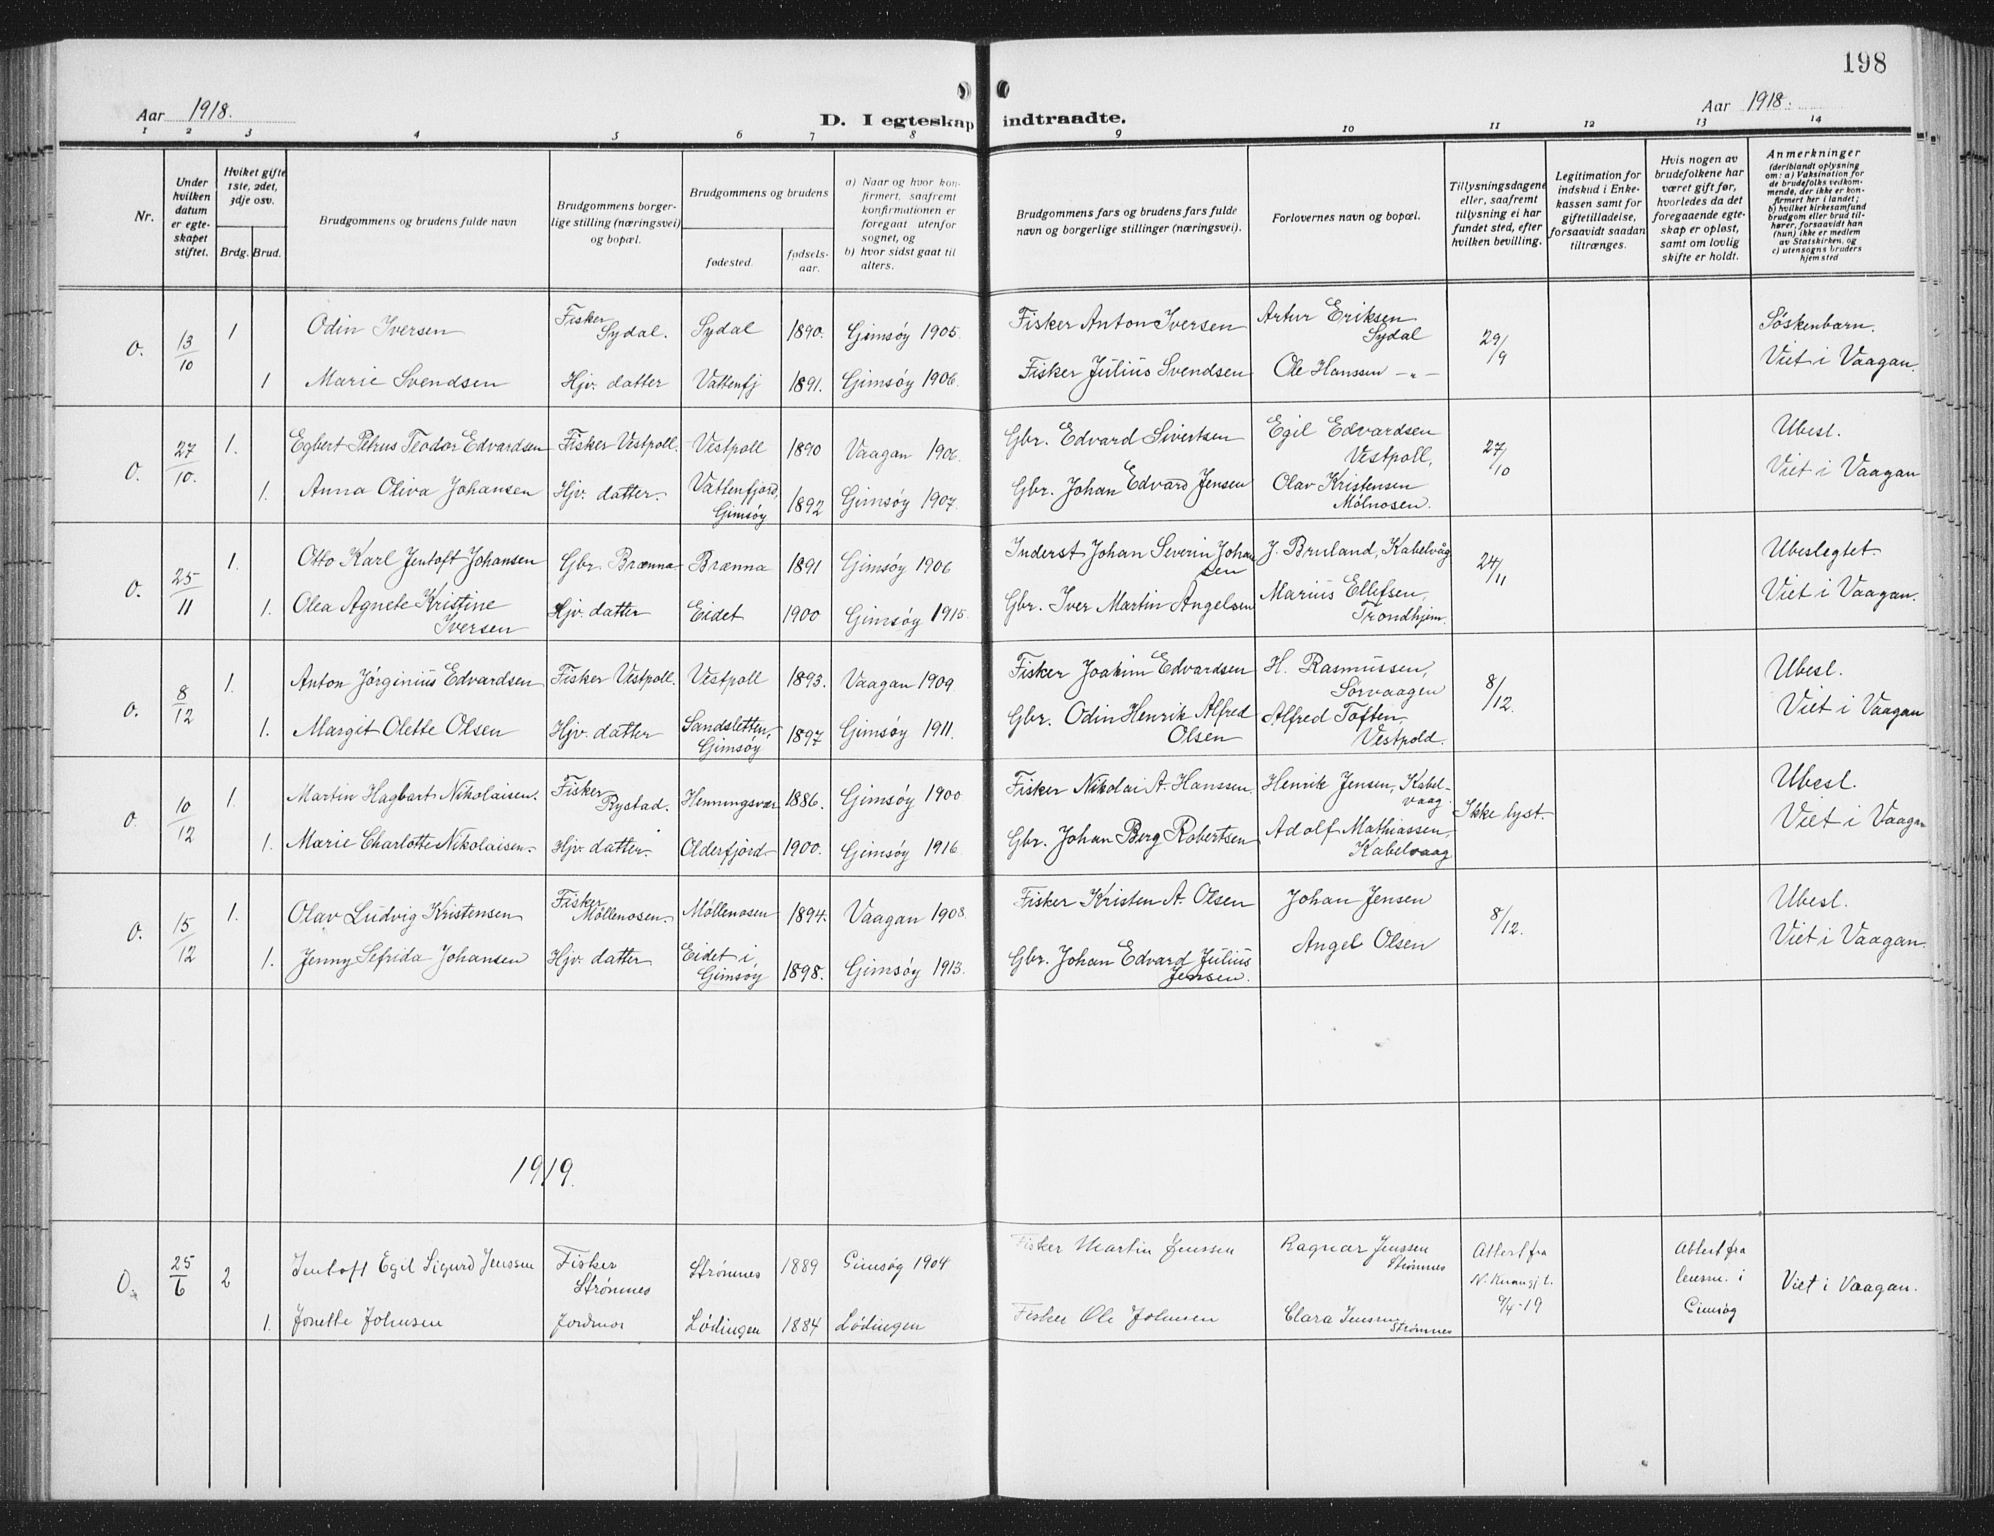 198
Aar 1918.
D. I egteskap indtraadte.
Aar 1918.
1 2 3 4 5 6 7 8 9 10 11 12 13 14
Nr.
Under hvilken datum er egteskapet stiftet.
Hvilket gifte 1ste, 2det, 3dje osv.
Brdg. Brud.
Brudgommens og brudens fulde navn
Brudgommens borgerlige stilling (næringsvei) og bopæl.
Brudgommens og brudens
fødested.
fødselsaar.
a) Naar og hvor konfirmert, saafremt konfirmationen er foregaat utenfor sognet, og
b) hvor sidst gaat til alters.
Brudgommens fars og brudens fars fulde navn og borgerlige stillinger (næringsvei).
Forlovernes navn og bopæl.
Tillysningsdagene eller, saafremt tillysning ei har fundet sted, efter hvilken bevilling.
Legitimation for indskud i Enkekassen samt for giftetilladelse, forsaavidt saadan tiltrænges.
Hvis nogen av brudefolkene har været gift før, hvorledes da det foregaaende egteskap er opløst, samt om lovlig skifte er holdt.
Anmerkninger
(deriblandt oplysning om: a) Vaksination for de brudefolks vedkommende, der ikke er konfirmert her i landet; b) hvilket kirkesamfund brudgom eller brud tilhører, forsaavidt han (hun) ikke er medlem av Statskirken, og c) utensogns bruders hjemsted
0. 13/10 1 Odin Iversen Fisker Sydal. Sydal 1890. Gimsöy 1905. Fisker Anton Iversen Artur Eriksen Sydal 29/9 Søskenbarn.
1 Marie Svendsen Hjv. datter Vattenfj 1891. Gimsöy 1906. Fisker Julius Svendsen Ole Hanssen -"- Viet i Vaagan.
0. 27/10. 1. Egbert Petrus Teodor Edvardsen Fisker Vestpoll. Vestpoll 1890 Vaagan 1906. Gbr. Edvard Sivertsen Egil Edvardsen Vestpoll, 27/10 Ubesl.
1. Anna Oliva Johansen Hjv. datter. Vattenfjord, Gimsöy 1892 Gimsöy 1907. Gbr. Johan Edvard Jensen Olav Kristensen Mölnosen. Viet i Vaagan
0. 25/11 1. Otto Karl Jentoft Johansen Gbr. Brænna Brænna 1891 Gimsöy 1906 Inderst Johan Severin Johansen J. Bruland, Kabelvåg 24/11 Ubeslegtet
1. Olea Agnete Kristine Iversen Hjv. datter Eidet 1900 Gimsöy 1915. Gbr. Iver Martin Angelsen Marius Ellefsen, Trondhjem. Viet i Vaagan.
0. 8/12 1. Anton Jörginius Edvardsen Fisker Vestpoll. Vestpoll 1893. Vaagan 1909. Fisker Joakim Edvardsen H. Rasmussen, Sörvaagen 8/12. Ubesl.
1. Margit Olette Olsen Hjv. datter Sandsletten, Gimsöy 1897 Gimsöy 1911. Gbr. Odin Henrik Alfred Olsen Alfred Toften, Vestpold. Viet i Vaagan
0. 10/12 1. Martin Hagbart Nikolaisen. Fisker Rystad. Henningsvær 1886. Gimsöy 1900 Fisker Nikolai A. Hanssen Henrik Jensen, Kabelvaag. Ikke lyst. Ubesl.
1. Marie Charlotte Nikolaisen. Hjv. datter. Olderfjord 1900. Gimsöy 1916. Gbr. Johan Berg Robertsen Adolf Mathiassen, Kabelvaag Viet i Vaagan
0. 15/12 1. Olav Ludvig Kristensen Fisker Möllenosen. Möllenosen 1894. Vaagan 1908. Fisker Kristen A. Olsen Johan Jensen 8/12. Ubesl.
1. Jenny Sefrida Johansen Hjv. datter Eidet i Gimsöy 1898. Gimsöy 1913. Gbr. Johan Edvard Julius Jensen. Angel Olsen Viet i Vaagan.
1919.
0. 25/6 2 Jentoft Egil Sigurd Jenssen Fisker Strömnes Strömnes 1889 Gimsöy 1904 Fisker Martin Jenssen Ragnar Jenssen Strömnes Attest fra 9/4-19 Attest fra i Gimsöy Viet i Vaagan.
1. Jonette Johnsen Jordmor Lödingen 1884 Lödingen Fisker Ole Johnsen Clara Jenssen Strömnes